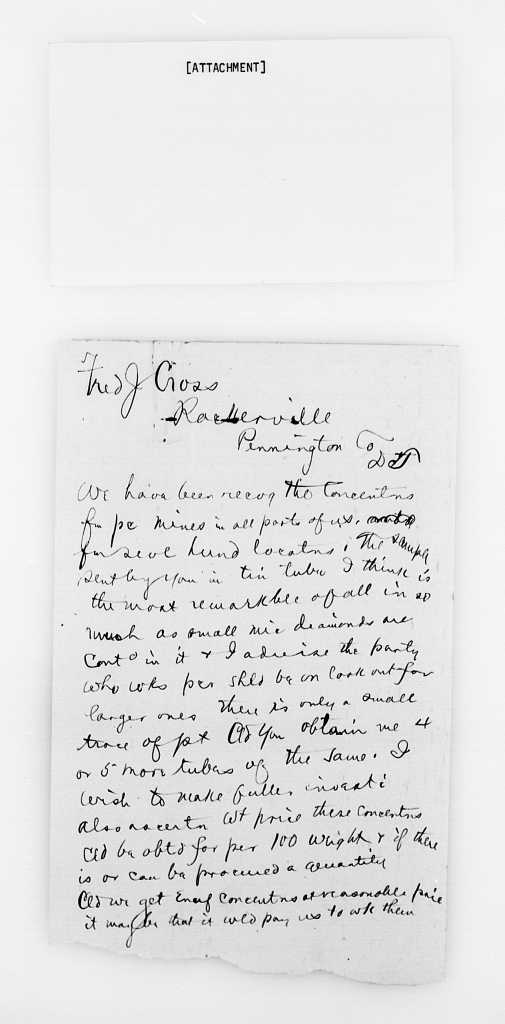 [ATTACHMENT]
Fred J Cross
Rockerville
Pennington Co
DT
We have been recvg the Concentns
fm pc mines in all parts of us.
fm sevl hund locatns. The sample
sent by you in tin tube I think is
the most remarkble of all in so
much as small mic diamonds are
Contd in it & I advise the party
who wks per shld be on look out for
larger ones There is only a small
trace of pt Cld You obtain me 4
or 5 more tubes of the same. I
wish to make fuller investi
also ascertn wt price these concentns
Cld be obtd for per 100 weight & if there
is or can be procured a quantity
Cld we get Enuf Concentns at reasonable price
it may be that it wld pay us to wk them